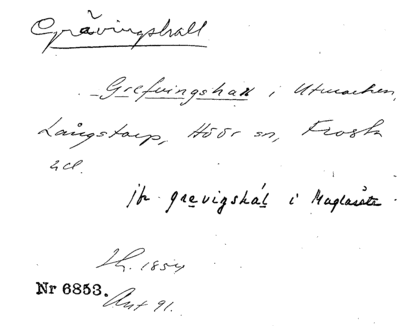 Grävingshall
Grefvingshall i Utmarken,
Långstorp, Höör sn, Frosta
hd.
jfr grevigshål i Maglasäte
Lh. 1854
Nr 6853.
Ant 91.